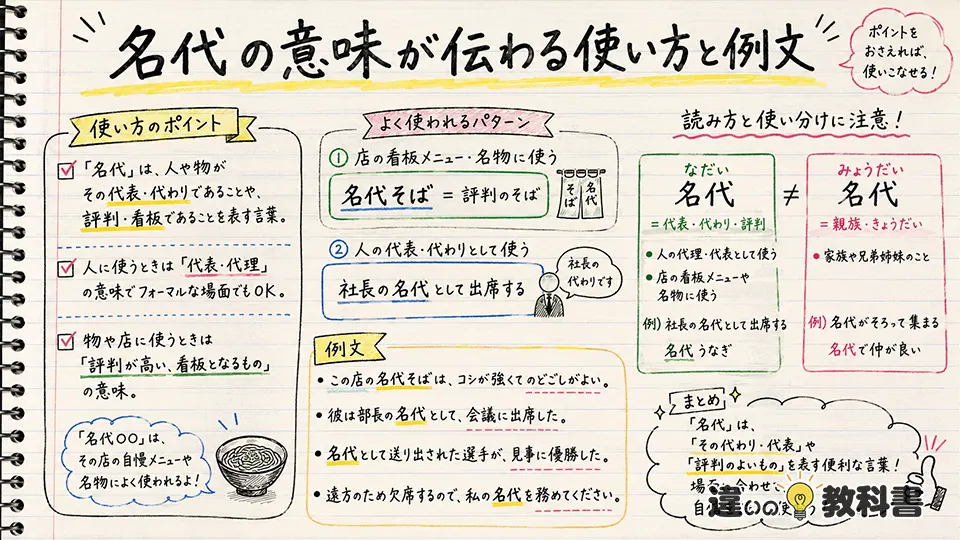 名代の意味が伝わる使い方と例文
ポイントを
おさえれば、
使いこなせる！
使い方のポイント
「名代」は、人や物が
その代表・代わりであることや、
評判・看板であることを表す言葉。
人に使うときは「代表・代理」
の意味でフォーマルな場面でもOK。
物や店に使うときは
「評判が高い、看板となるもの」
の意味。
「名代〇〇」は、
その店の自慢メニューや
名物によく使われるよ！
よく使われるパターン
① 店の看板メニュー・名物に使う
名代そば = 評判のそば
名代
そば
② 人の代表・代わりとして使う
社長の名代として出席する
社長の
代わりです
例文
• この店の名代そばは、コシが強くてのどごしがよい。
• 彼は部長の名代として、会議に出席した。
• 名代として送り出された選手が、見事に優勝した。
• 遠方のため欠席するので、私の名代を務めてください。
読み方と使い分けに注意！
なだい
名代
=代表・代わり・評判
• 人の代理・代表として使う
• 店の看板メニューや
名物に使う
例) 社長の名代として出席する
名代うなぎ
≠
みょうだい
名代
=親族・きょうだい
• 家族や兄弟姉妹のこと
例) 名代がそろって集まる
名代で仲が良い
まとめ
「名代」は、
「その代わり・代表」や
「評判のよいもの」を表す便利な言葉！
場
合わせて
自
使
違いの教科書